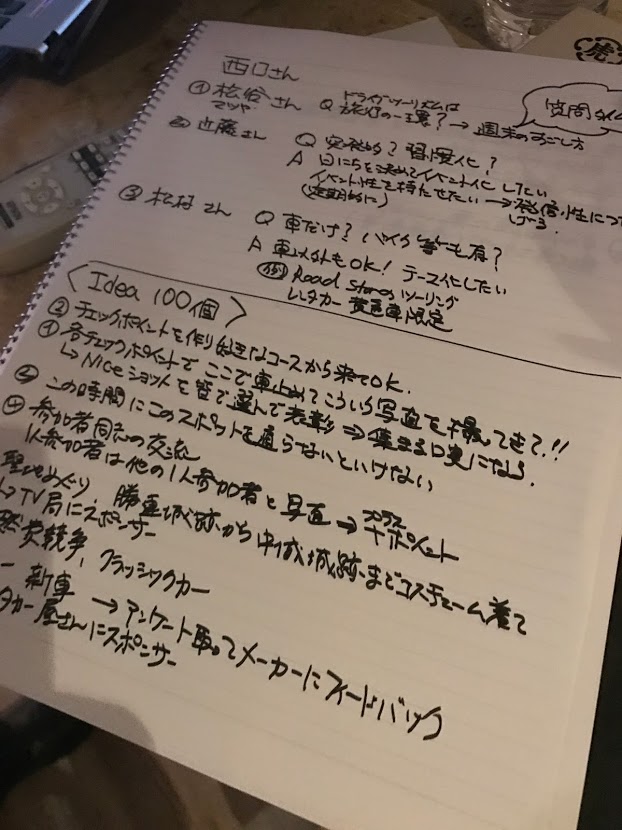 西口さん
質問タイム
① 松谷さん Q ドライブツーリズムは
マツヤ 旅行の一環? → 週末のすごし方
② 近藤さん Q 突発的? 習慣化?
A 日にちを決めてイベント化したい
イベント性を持たせたい → 発信性につ
(定期的に) げる
③ 松村さん Q 車だけ? バイク等も有?
A 車以外もOK! テーマ化したい
例 Road Starのツーリング
レンタカー 黄色車限定
〈Idea 100個〉
② チェックポイントを作り好きなコースから来てOK.
① 各チェックポイントで ここで車止めてこういう写真を撮ってきて!!
↳ Niceショットを皆で選んで表彰 ⇒ 集まる口実になる.
この時間にこのスポットを通らないといけない
④ 参加者同志の交流
1人参加者は他の1人参加者と写真 → プラス
+ポイント
聖地めぐり, 勝連城跡から中城城跡までコスチューム着て
↳ TV局にスポンサー
燃費競争, クラッシックカー
新車 → アンケート取ってメーカーにフィードバック
タカー屋さんにスポンサー